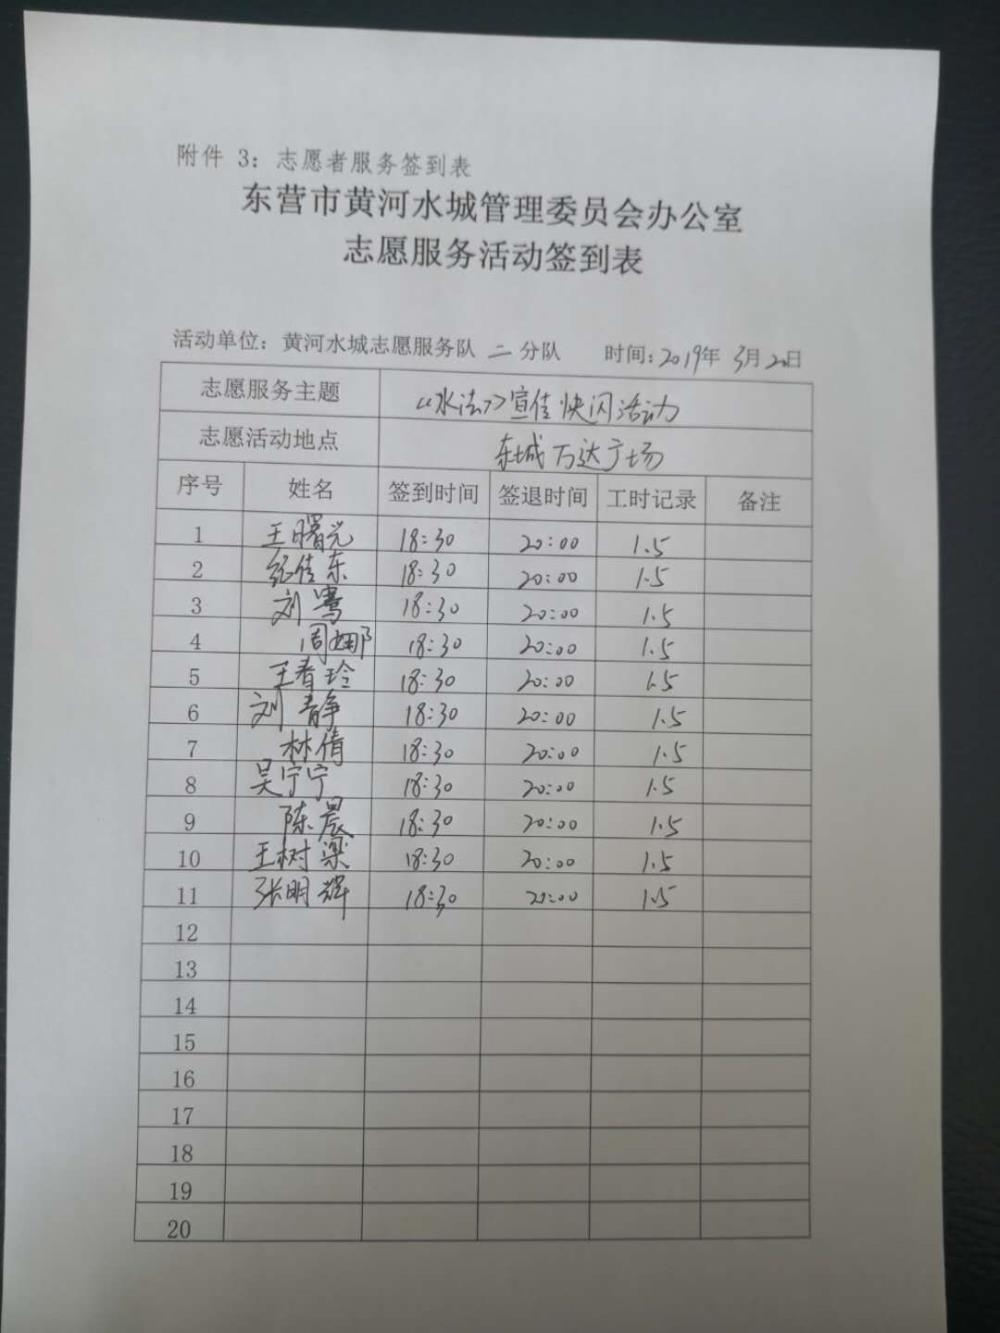 附件 3：志愿者服务签到表
东营市黄河水城管理委员会办公室
志愿服务活动签到表
活动单位：黄河水城志愿服务队 二 分队 时间：2019年 3月20日
志愿服务主题 《水法》宣传快闪活动
志愿活动地点 东城万达广场
序号 姓名 签到时间 签退时间 工时记录 备注
1 王曙光 18:30 20:00 1.5
2 佳东 18:30 20:00 1.5
3 刘 18:30 20:00 1.5
4 周娜 18:30 20:00 1.5
5 王春玲 18:30 20:00 1.5
6 刘静 18:30 20:00 1.5
7 林倩 18:30 20:00 1.5
8 吴宁宁 18:30 20:00 1.5
9 陈晨 18:30 20:00 1.5
10 王树梁 18:30 20:00 1.5
11 张明辉 18:30 20:00 1.5
12
13
14
15
16
17
18
19
20